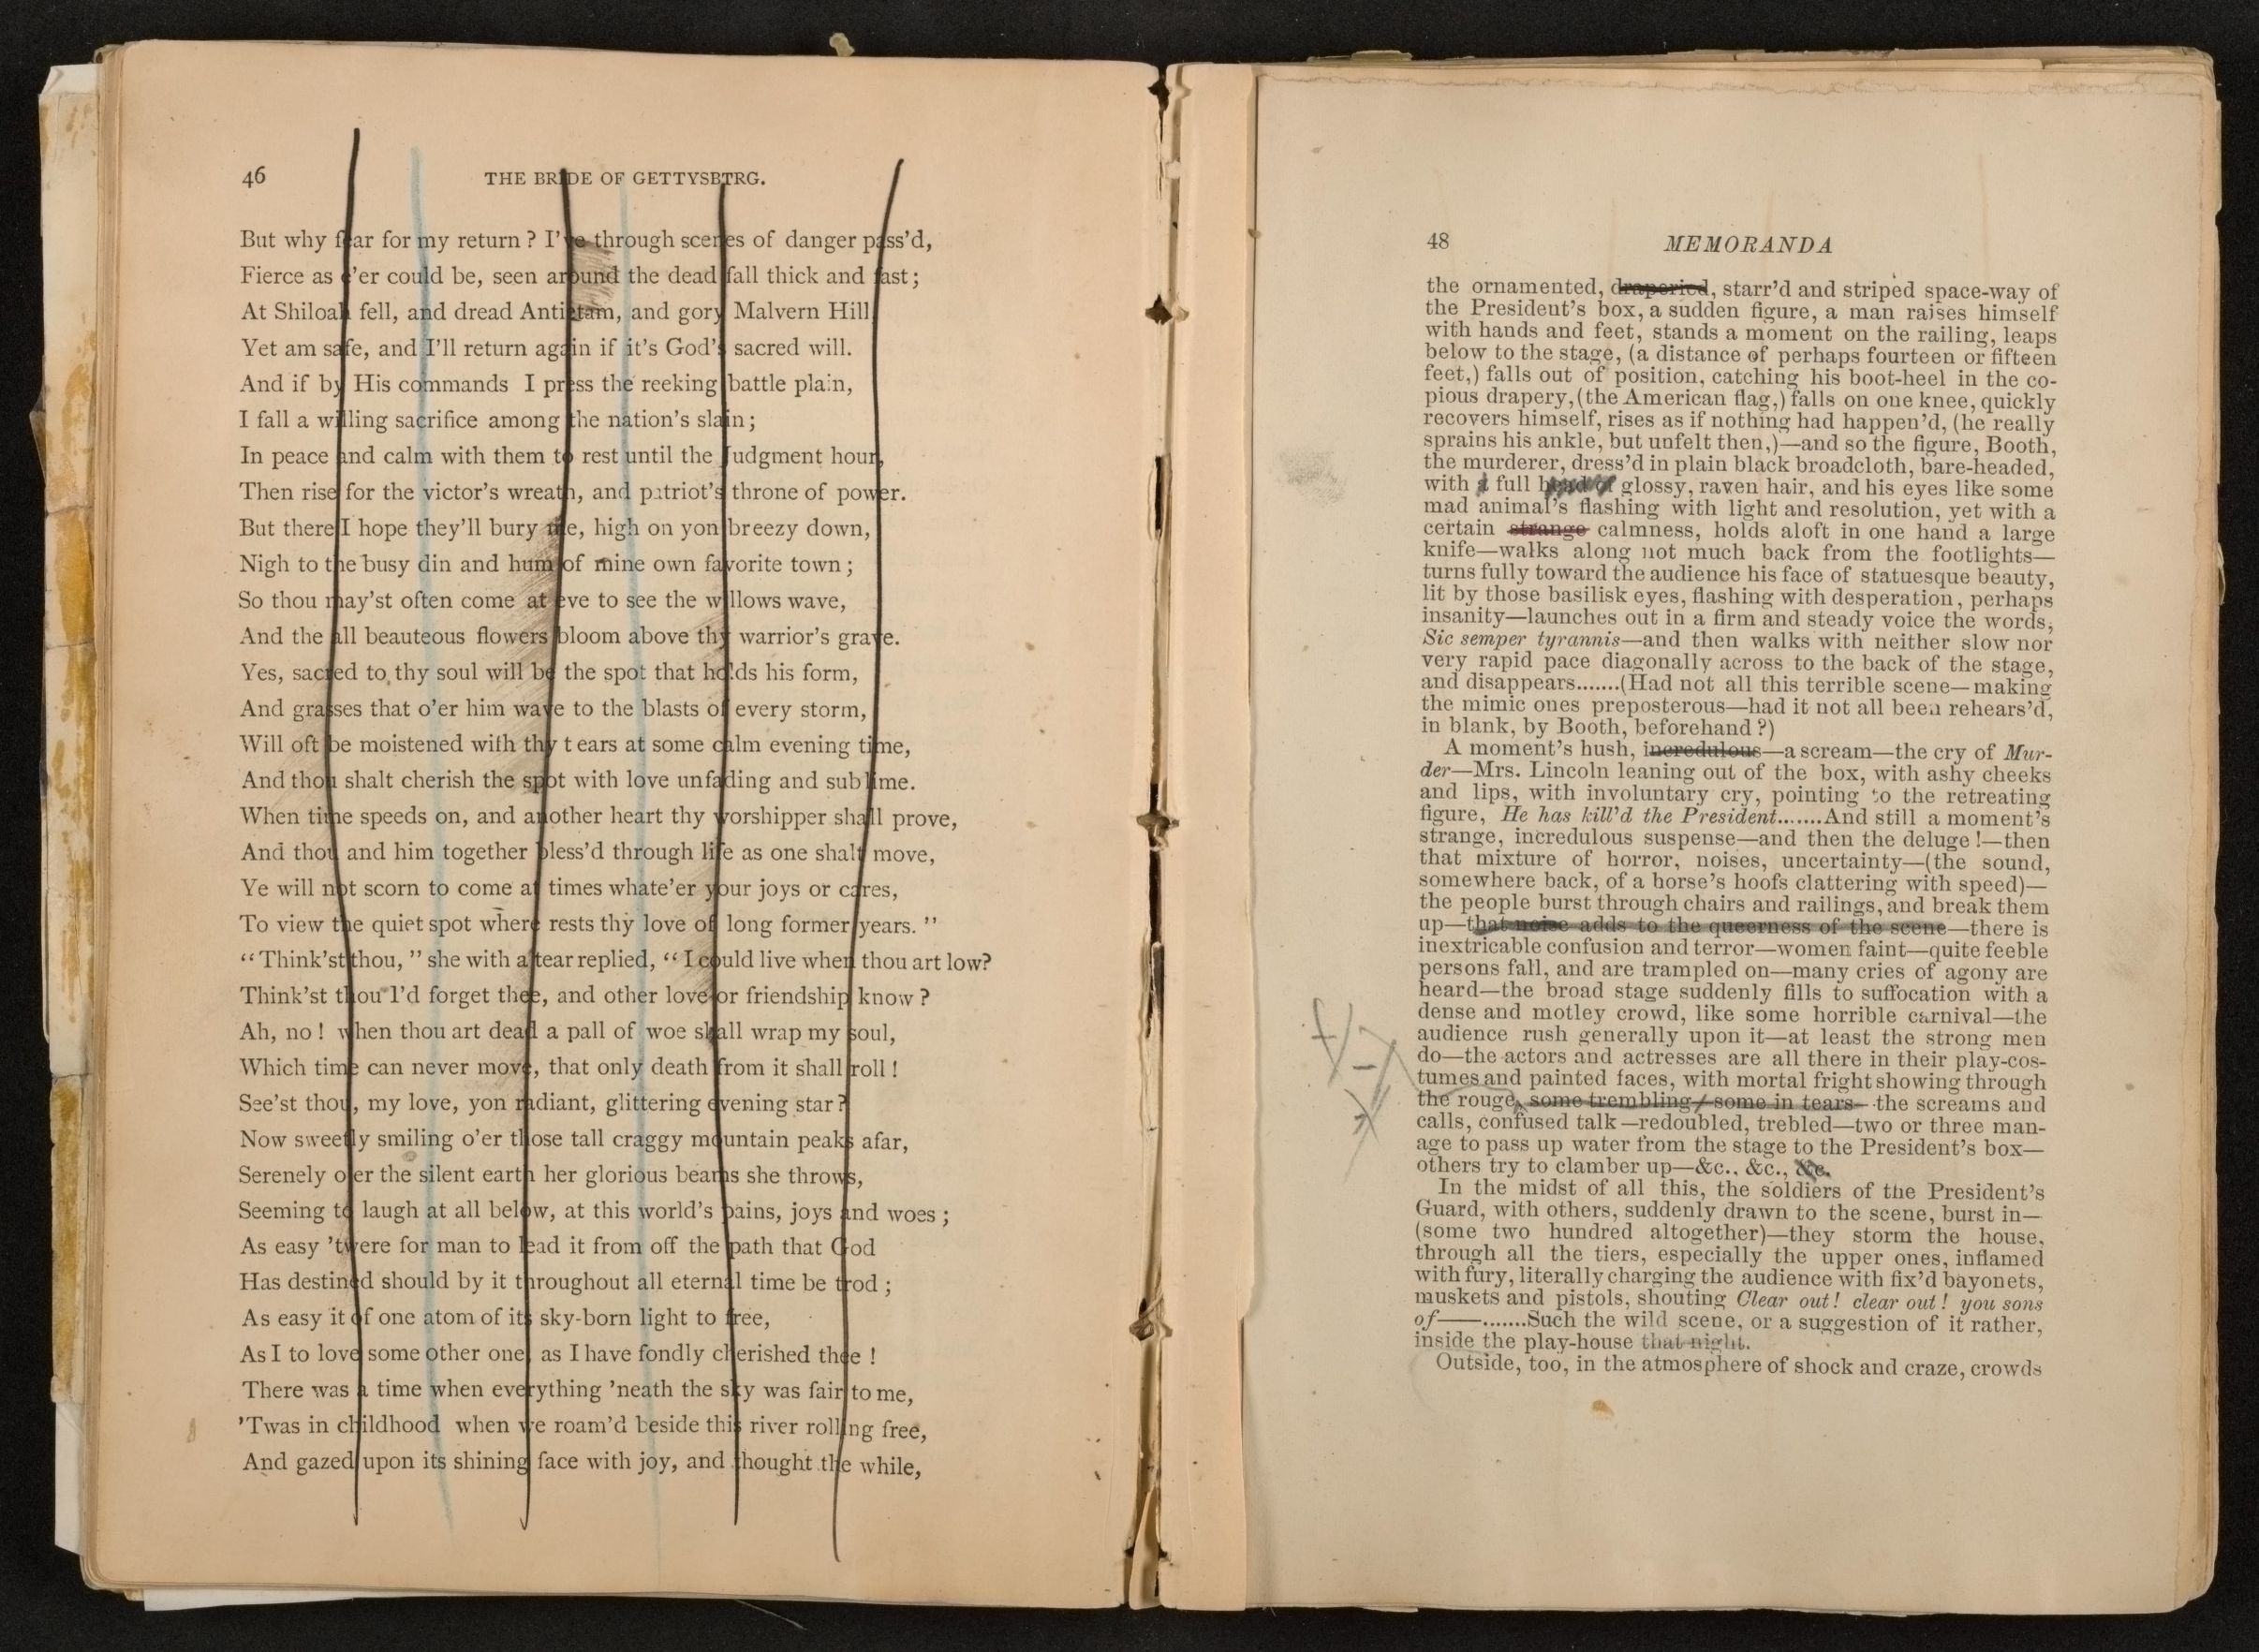 46
THE BRIDE OF GETTYSBTRG.
But why fear for my return ? I've through scenes of danger pass'd,
Fierce as e'er could be, seen around the dead fall thick and fast ;
At Shiloah fell, and dread Antietam, and gory Malvern Hill,
Yet am safe, and I'll return again if it's God's sacred will.
And if by His commands I press the reeking battle plain,
I fall a willing sacrifice among the nation's slain ;
In peace and calm with them to rest until the Judgment hour,
Then rise for the victor's wreath, and patriot's throne of power.
But there I hope they'll bury me, high on yon breezy down,
Nigh to the busy din and hum of mine own favorite town ;
So thou may'st often come at eve to see the willows wave,
And the all beauteous flowers bloom above thy warrior's grave.
Yes, sacred to thy soul will be the spot that holds his form,
And grasses that o'er him wave to the blasts of every storm,
Will oft be moistened with thy t ears at some calm evening time,
And thou shalt cherish the spot with love unfading and sublime.
When time speeds on, and another heart thy worshipper shall prove,
And thou and him together bless'd through life as one shalt move,
Ye will not scorn to come at times whate'er your joys or cares,
To view the quiet spot where rests thy love of long former years. ”
“ Think'st thou, ” she with a tear replied, “ I could live when thou art low?
Think'st thou I'd forget thee, and other love or friendship know ?
Ah, no ! when thou art dead a pall of woe shall wrap my soul,
Which time can never move, that only death from it shall roll !
See'st thou, my love, yon radiant, glittering evening star ?
Now sweetly smiling o'er those tall craggy mountain peaks afar,
Serenely o'er the silent earth her glorious beams she throws,
Seeming to laugh at all below, at this world's pains, joys and woes ;
As easy 'twere for man to lead it from off the path that God
Has destined should by it throughout all eternal time be trod ;
As easy it of one atom of its sky-born light to free,
As I to love some other one, as I have fondly cherished thee !
There was a time when everything 'neath the sky was fair to me,
'Twas in childhood when we roam'd beside this river rolling free,
And gazed upon its shining face with joy, and thought the while,
48
MEMORANDA
the ornamented, draperied, starr'd and striped space-way of
the President's box, a sudden figure, a man raises himself
with hands and feet, stands a moment on the railing, leaps
below to the stage, (a distance of perhaps fourteen or fifteen
feet,) falls out of position, catching his boot-heel in the co-
pious drapery, (the American flag,) falls on one knee, quickly
recovers himself, rises as if nothing had happen'd, (he really
sprains his ankle, but unfelt then,)—and so the figure, Booth,
the murderer, dress'd in plain black broadcloth, bare-headed,
with a full head of glossy, raven hair, and his eyes like some
mad animal's flashing with light and resolution, yet with a
certain strange calmness, holds aloft in one hand a large
knife—walks along not much back from the footlights—
turns fully toward the audience his face of statuesque beauty,
lit by those basilisk eyes, flashing with desperation, perhaps
insanity—launches out in a firm and steady voice the words,
Sic semper tyrannis—and then walks with neither slow nor
very rapid pace diagonally across to the back of the stage,
and disappears.......(Had not all this terrible scene—making
the mimic ones preposterous—had it not all been rehears'd,
in blank, by Booth, beforehand ?)
A moment's hush, incredulous—a scream—the cry of Mur-
der—Mrs. Lincoln leaning out of the box, with ashy cheeks
and lips, with involuntary cry, pointing to the retreating
figure, He has kill'd the President.......And still a moment's
strange, incredulous suspense—and then the deluge !—then
that mixture of horror, noises, uncertainty—(the sound,
somewhere back, of a horse's hoofs clattering with speed)—
the people burst through chairs and railings, and break them
up—that noise adds to the queerness of the scene—there is
inextricable confusion and terror—women faint—quite feeble
persons fall, and are trampled on—many cries of agony are
heard—the broad stage suddenly fills to suffocation with a
dense and motley crowd, like some horrible carnival—the
audience rush generally upon it—at least the strong men
do—the actors and actresses are all there in their play-cos-
tumes and painted faces, with mortal fright showing through
the rouge, some trembling—some in tears—the screams and
calls, confused talk—redoubled, trebled—two or three man-
age to pass up water from the stage to the President's box—
others try to clamber up—&c., &c., &c.
In the midst of all this, the soldiers of the President's
Guard, with others, suddenly drawn to the scene, burst in—
(some two hundred altogether)—they storm the house,
through all the tiers, especially the upper ones, inflamed
with fury, literally charging the audience with fix'd bayonets,
muskets and pistols, shouting Clear out! clear out! you sons
of——.......Such the wild scene, or a suggestion of it rather,
inside the play-house that night.
Outside, too, in the atmosphere of shock and craze, crowds